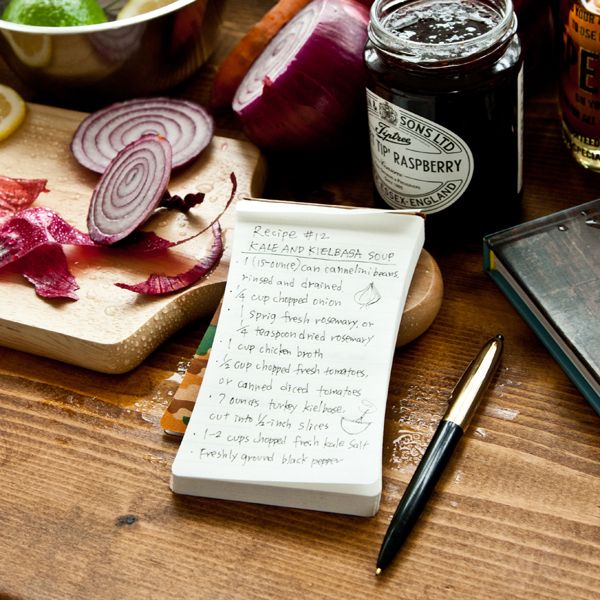 Recipe #12
KALE AND KIELBASA SOUP
· 1 (15-ounce) can cannelini beans,
rinsed and drained
· 1/4 cup chopped onion
· 1 sprig fresh rosemary, or
1/4 teaspoon dried rosemary
· 1 cup chicken broth
· 1/2 cup chopped fresh tomatoes,
or canned diced tomatoes
· 7 ounces turkey kielbase,
cut into 1/2-inch slices
· 1-2 cups chopped fresh kale Salt
· Freshly ground black pepper
& SONS LTD
Tiptree
TIP' RASPBERRY
ESSEX · ENGLAND